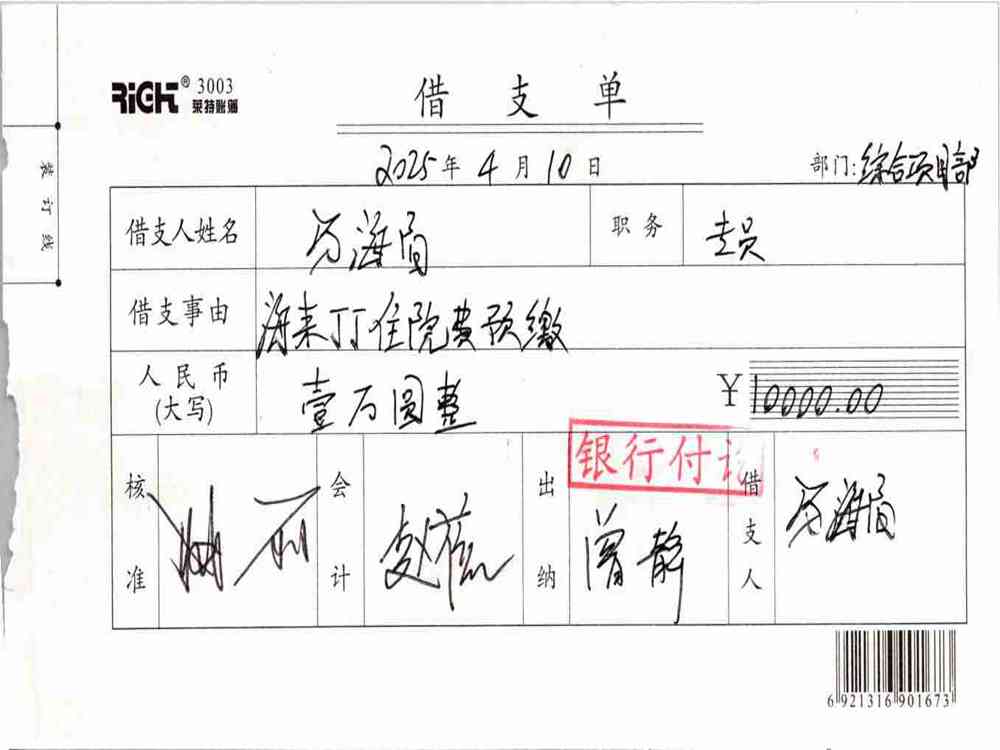 RIGHT® 3003
莱特账簿
借支单
2025年4月10日
部门:综合项目部
装订线
借支人姓名
职务 专员
借支事由 海来丁丁住院费预缴
人民币(大写) 壹万圆整 ¥10000.00
银行付讫
核准
会计
出纳 曾静
借支人
6 921316 901673